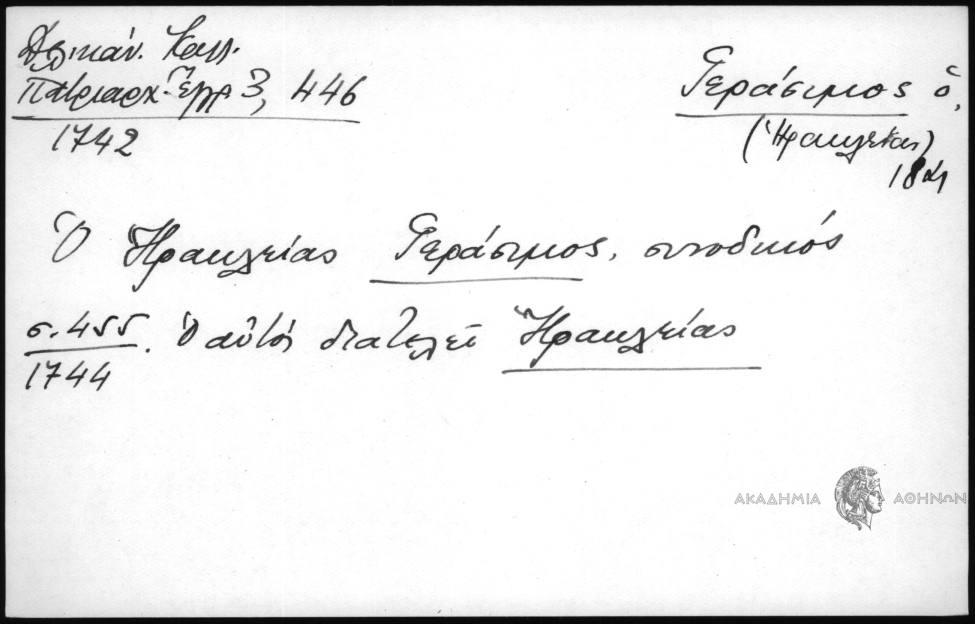 Δελικάν. Καλλ.
Πατριαρχ. Ἔγγρ 3, 446
1742
Γεράσιμος ὁ,
(Ἡρακλείας)
18ος
Ὁ Ἡρακλείας Γεράσιμος, συνοδικός
σ. 455. Ὁ αὐτός διατελεῖ Ἡρακλείας
1744
ΑΚΑΔΗΜΙΑ ΑΘΗΝΩΝ